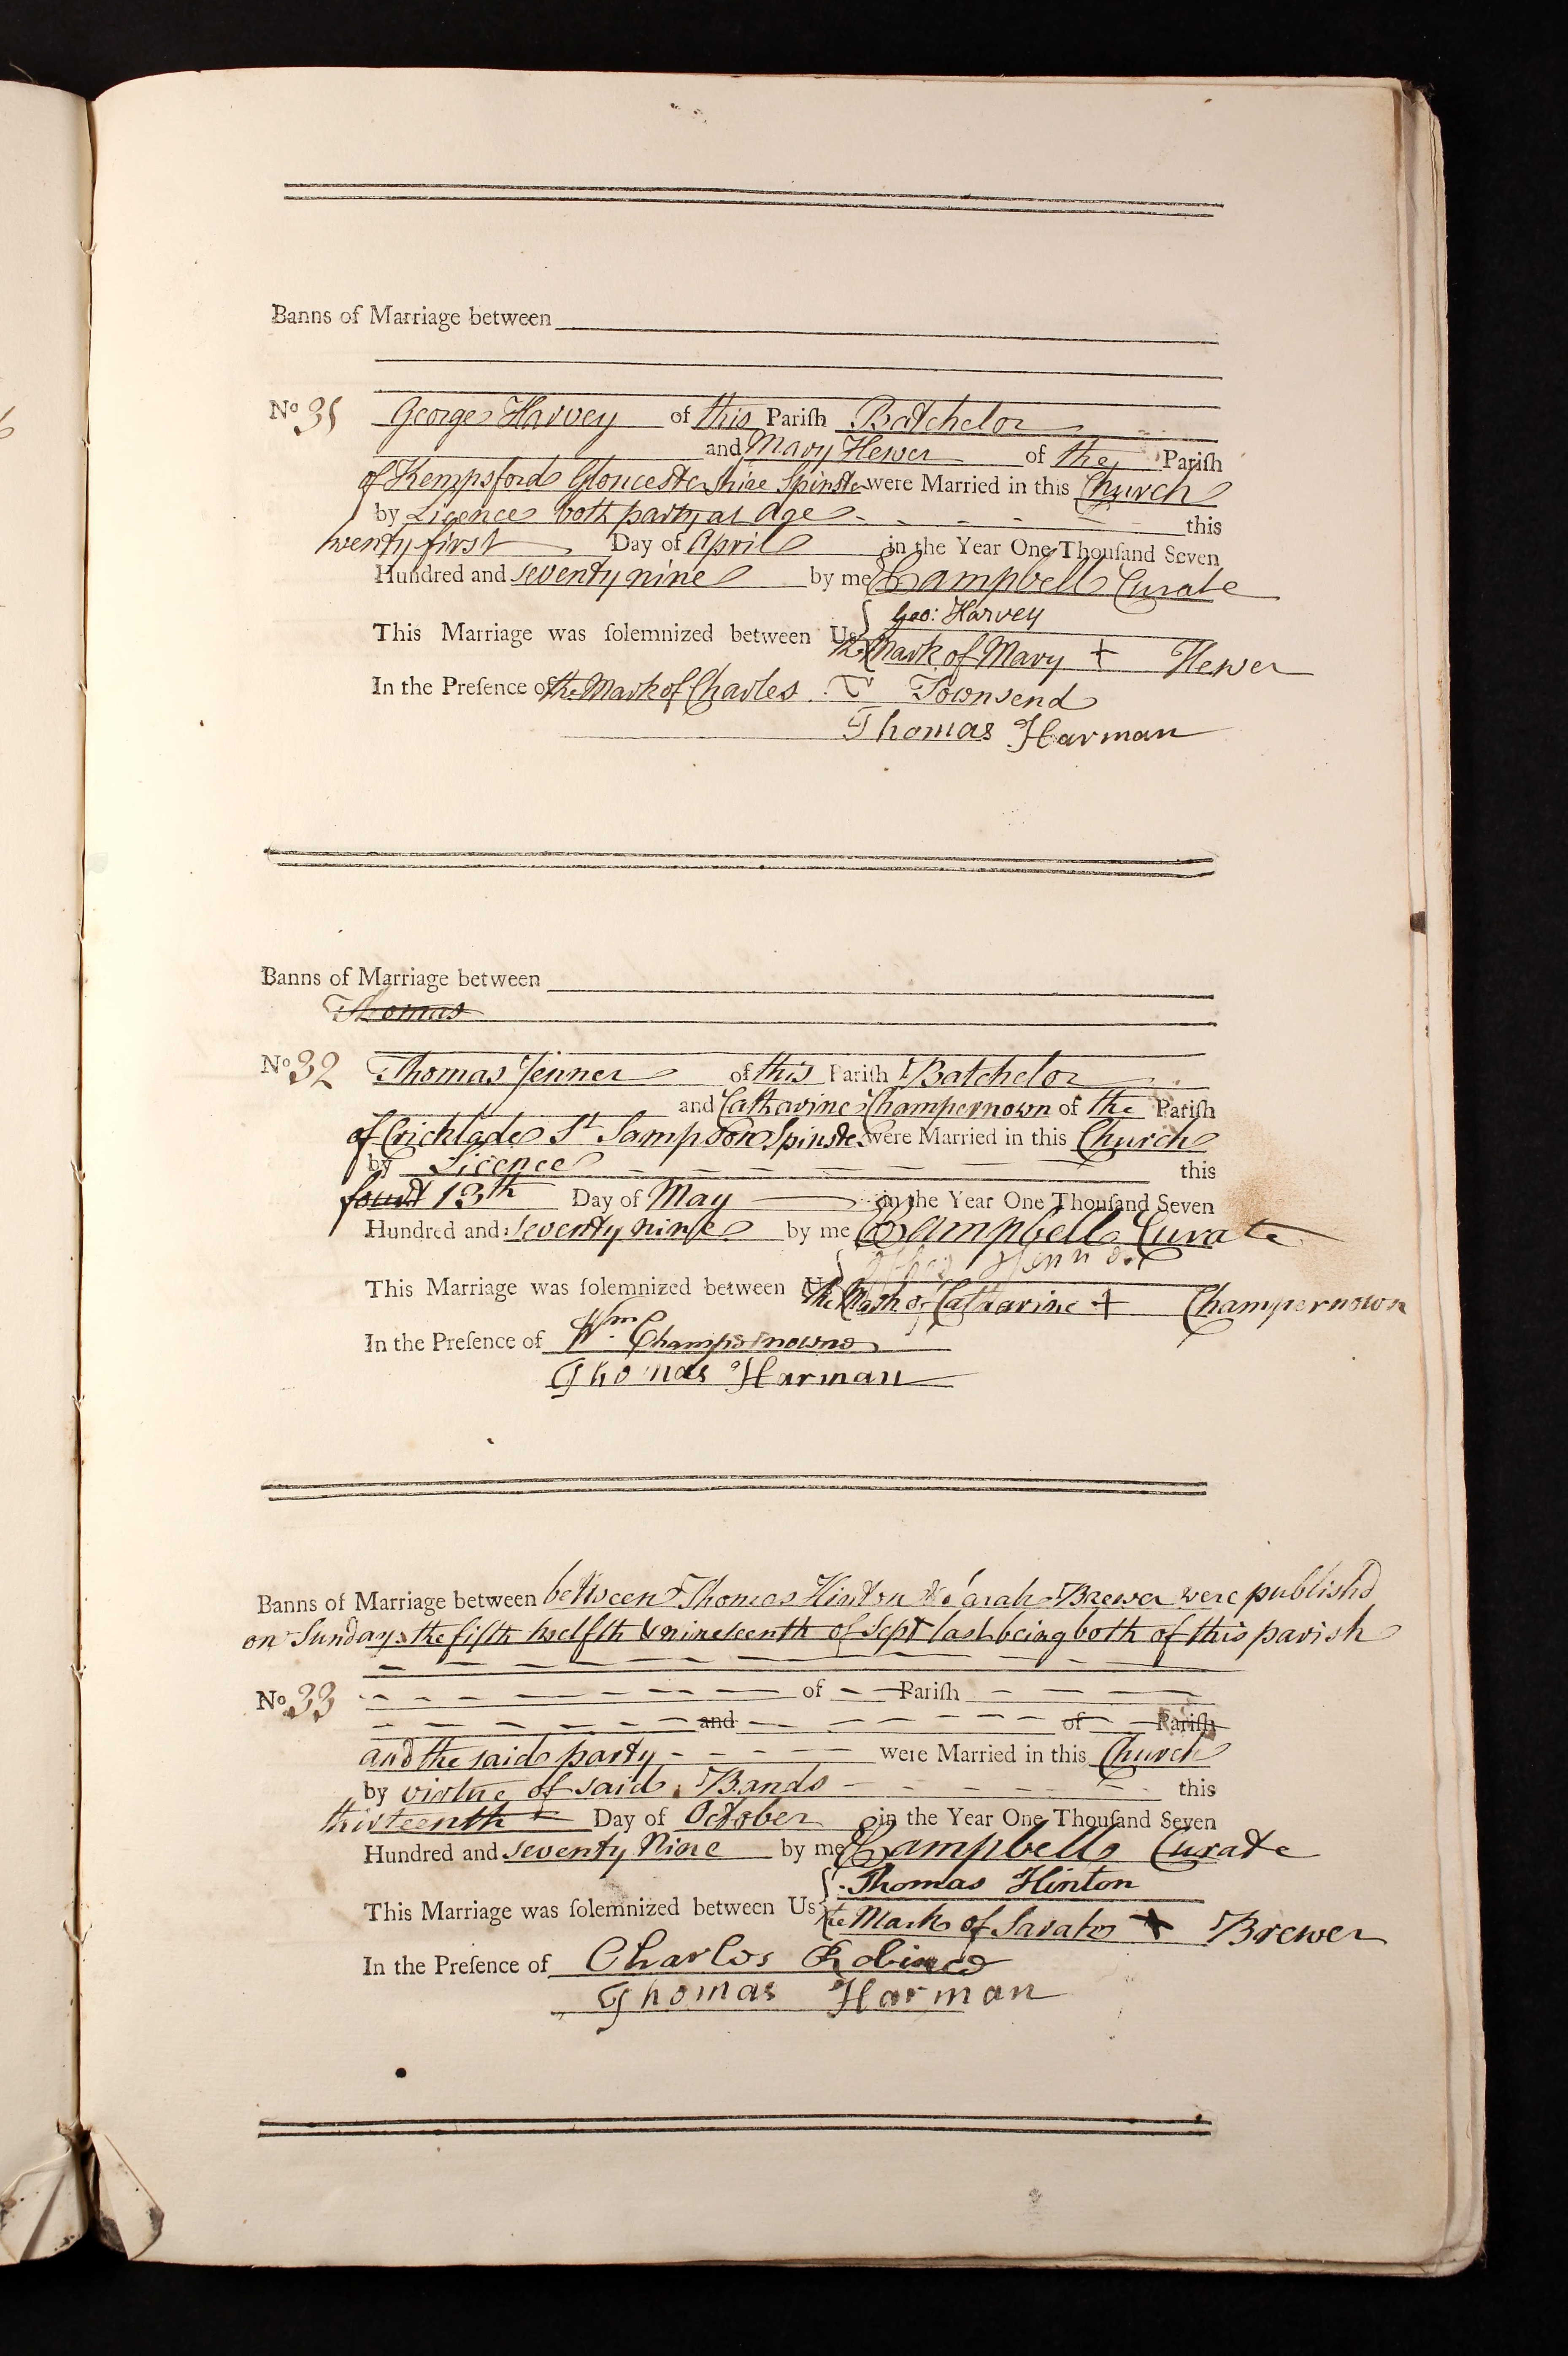 Banns of Marriage between
No 31 George Harvey of this Pariſh Batchelor
and Mary Hewer of the Pariſh
of Kempsford Gloucestershire Spinster were Married in this Church
by Licence both party at Age this
twenty first Day of April in the Year One Thouſand Seven
Hundred and seventy nine by me Campbell Curate
This Marriage was ſolemnized between Us Geo: Harvey
the Mark of Mary + Hewer
In the Preſence of the Mark of Charles T Townsend
Thomas Harman
Banns of Marriage between
Thomas
No 32 Thomas Jenner of this Pariſh Batchelor
and Catharine Champernown of the Pariſh
of Cricklade St Sampson Spinster were Married in this Church
by Licence this
13th Day of May in the Year One Thouſand Seven
Hundred and seventy nine by me Campbell Curate
This Marriage was ſolemnized between Us Jenner
the Mark of Catharine + Champernown
In the Preſence of Wm Champernowne
Thomas Harman
Banns of Marriage between between Thomas Hinton & Sarah Brewer were publish'd
on Sunday the fifth twelfth & nineteenth of Sept last being both of this parish
No 33 of Pariſh
and of Pariſh
and the said party were Married in this Church
by virtue of said Bands this
thirteenth Day of October in the Year One Thouſand Seven
Hundred and seventy Nine by me Campbell Curate
This Marriage was ſolemnized between Us Thomas Hinton
the Mark of Sarah + Brewer
In the Preſence of Charles
Thomas Harman